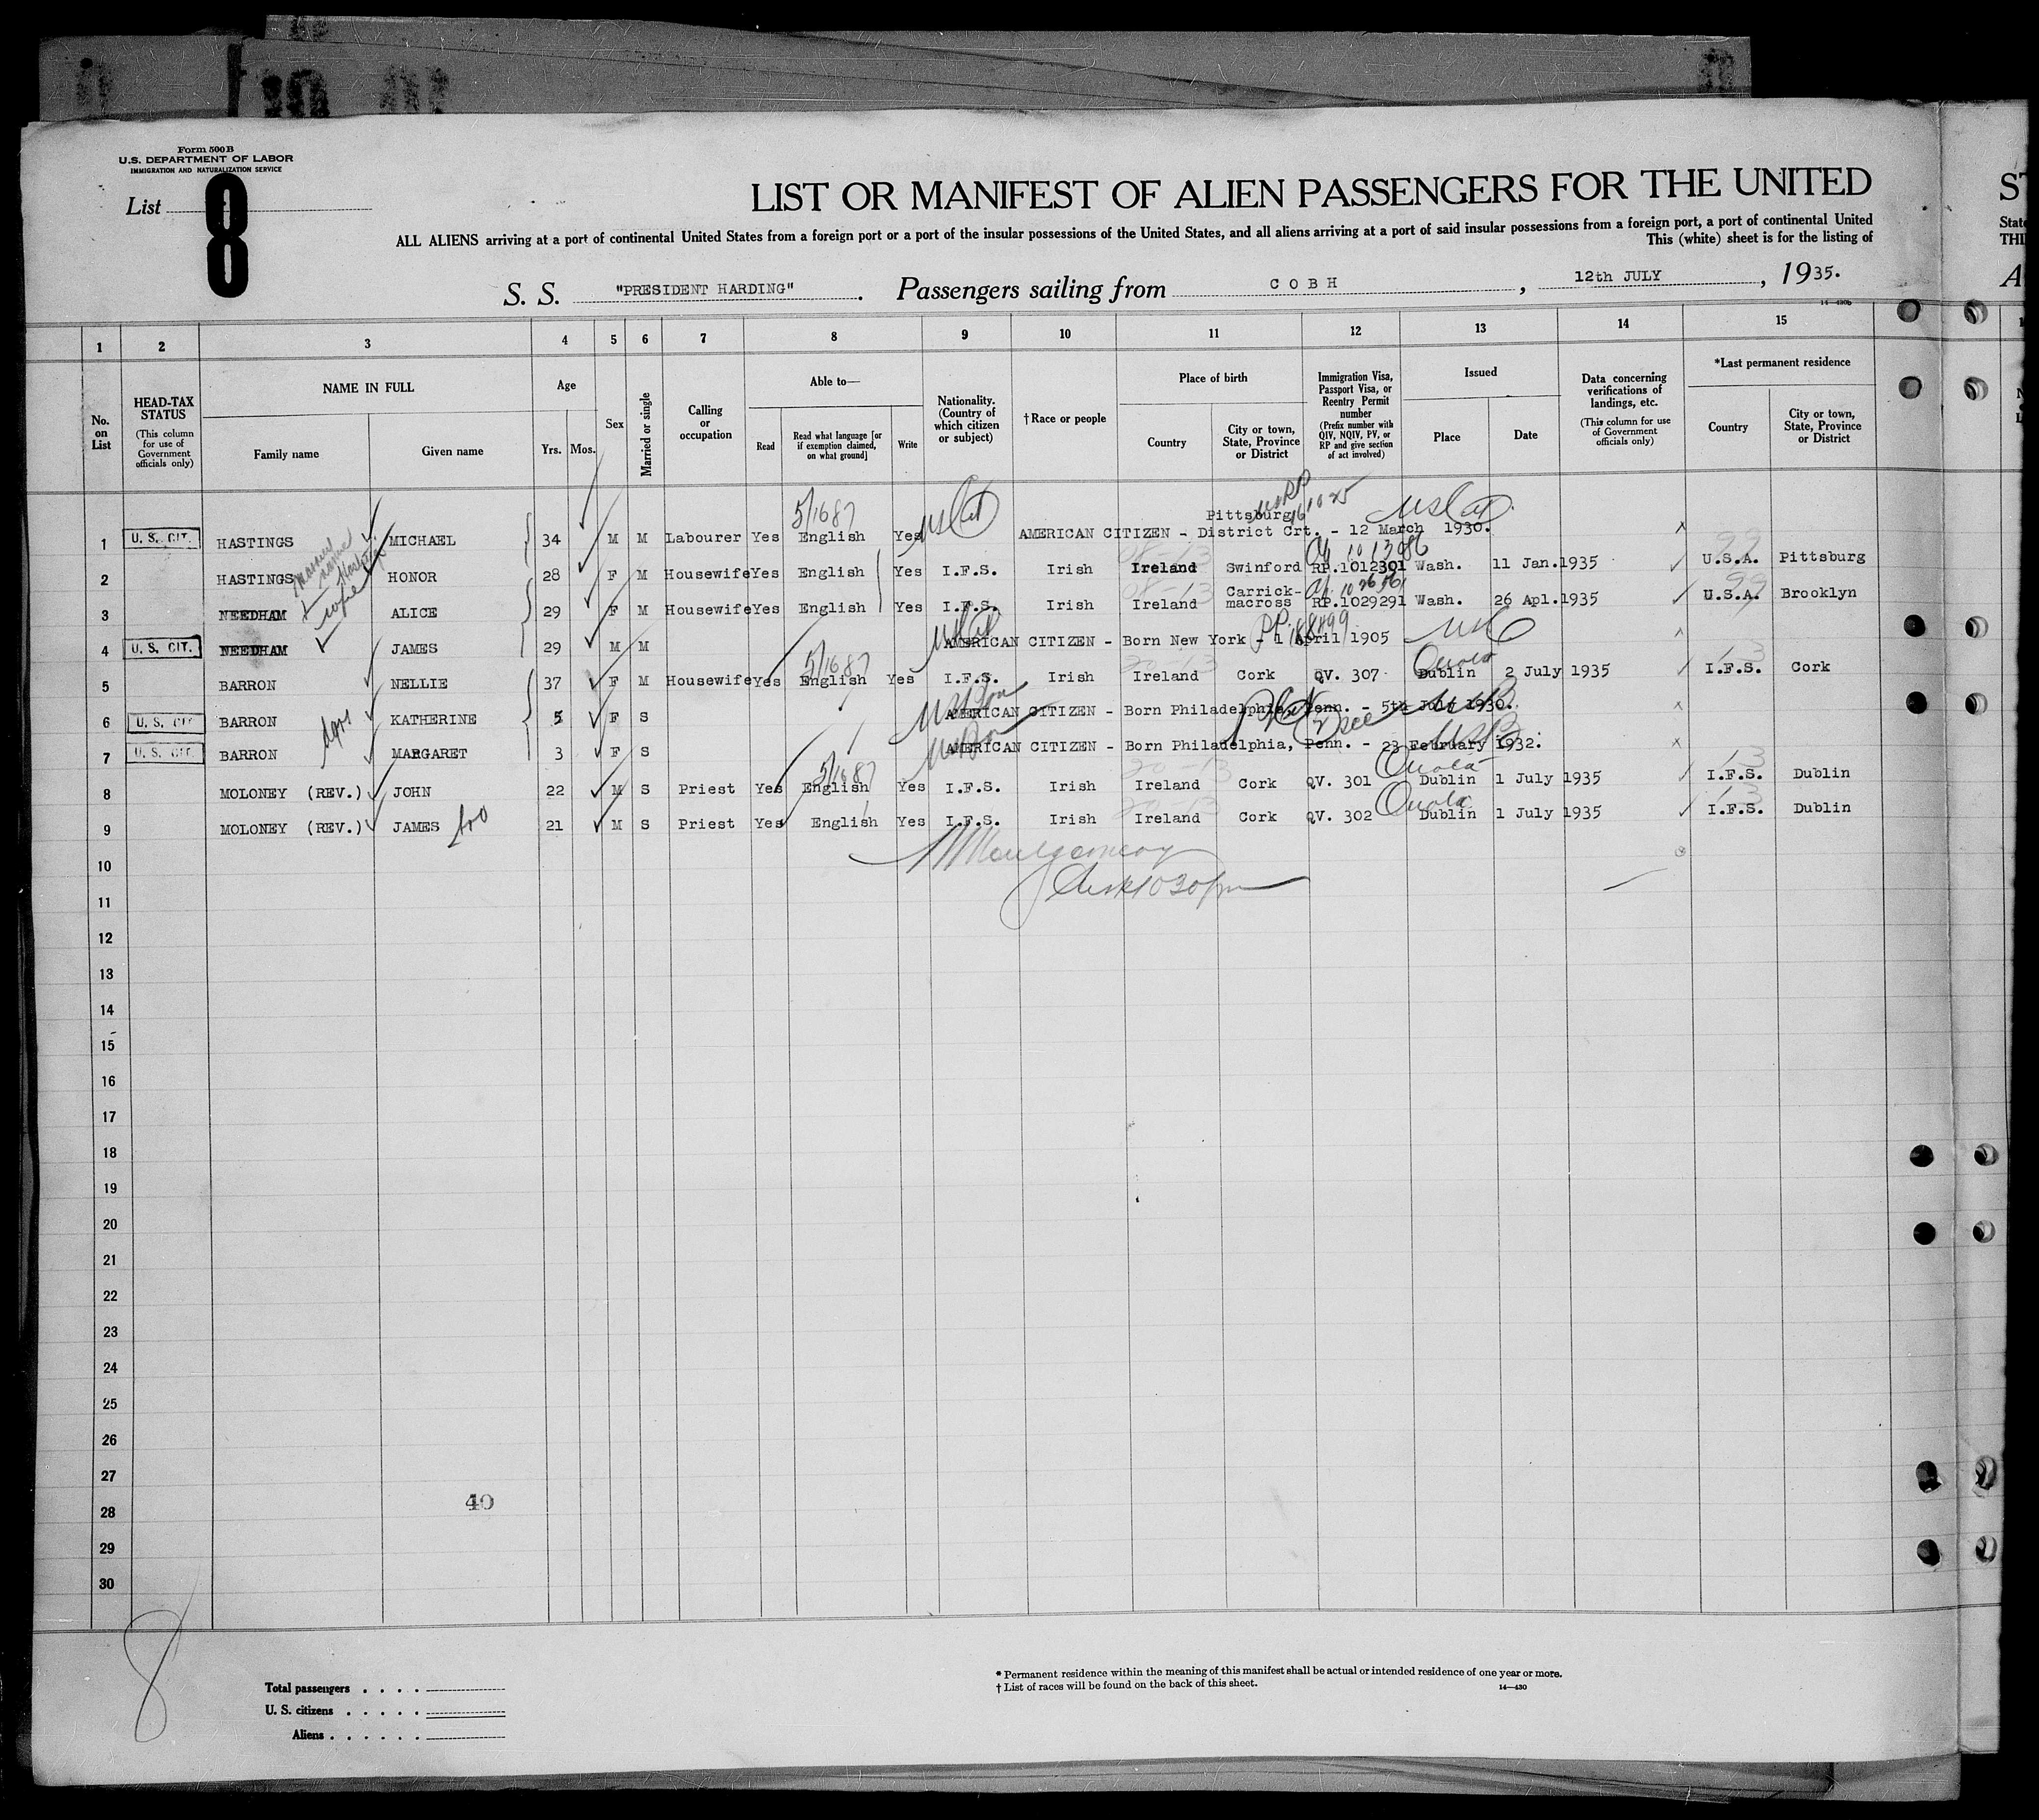 Form 500 B
U.S. DEPARTMENT OF LABOR
IMMIGRATION AND NATURALIZATION SERVICE
List 8
LIST OR MANIFEST OF ALIEN PASSENGERS FOR THE UNITED
ALL ALIENS arriving at a port of continental United States from a foreign port or a port of the insular possessions of the United States, and all aliens arriving at a port of said insular possessions from a foreign port, a port of continental United
This (white) sheet is for the listing of
S. S. "PRESIDENT HARDING". Passengers sailing from COBH, 12th JULY, 1935.
1 2 3 4 5 6 7 8 9 10 11 12 13 14 15
No. on List
HEAD-TAX STATUS (This column for use of Government officials only)
NAME IN FULL Family name Given name
Age Yrs. Mos.
Sex
Married or single
Calling or occupation
Able to— Read Read what language [or if exemption claimed, on what ground] Write
Nationality. (Country of which citizen or subject)
†Race or people
Place of birth Country City or town, State, Province or District
Immigration Visa, Passport Visa, or Reentry Permit number (Prefix number with QIV, NQIV, PV, or RP and give section of act involved)
Issued Place Date
Data concerning verifications of landings, etc. (This column for use of Government officials only)
*Last permanent residence Country City or town, State, Province or District
5/1687
Pittsburg
1 U. S. CIT. HASTINGS MICHAEL 34 M M Labourer Yes English Yes AMERICAN CITIZEN - District Crt. - 12 March 1930.
2 HASTINGS HONOR 28 F M Housewife Yes English Yes I.F.S. Irish Ireland Swinford RP.1012301 Wash. 11 Jan.1935 U.S.A. Pittsburg
3 NEEDHAM wife ALICE 29 F M Housewife Yes English Yes I.F.S. Irish Ireland Carrick-macross RP.1029291 Wash. 26 Apl.1935 U.S.A. Brooklyn
4 U. S. CIT. NEEDHAM JAMES 29 M M AMERICAN CITIZEN - Born New York - 1 April 1905
5/1687
5 BARRON NELLIE 37 F M Housewife Yes English Yes I.F.S. Irish Ireland Cork QV. 307 Dublin 2 July 1935 I.F.S. Cork
6 U. S. CIT BARRON KATHERINE 5 F S AMERICAN CITIZEN - Born Philadelphia, Penn. - 5th July 1930.
7 U. S. CIT. BARRON MARGARET 3 F S AMERICAN CITIZEN - Born Philadelphia, Penn. - 23 February 1932.
5/1687
8 MOLONEY (REV.) JOHN 22 M S Priest Yes English Yes I.F.S. Irish Ireland Cork QV. 301 Dublin 1 July 1935 I.F.S. Dublin
9 MOLONEY (REV.) JAMES bro 21 M S Priest Yes English Yes I.F.S. Irish Ireland Cork QV. 302 Dublin 1 July 1935 I.F.S. Dublin
10 Montgomery
11
12
13
14
15
16
17
18
19
20
21
22
23
24
25
26
27
28 40
29
30
8
Total passengers
U. S. citizens
Aliens
* Permanent residence within the meaning of this manifest shall be actual or intended residence of one year or more.
† List of races will be found on the back of this sheet.
14—430